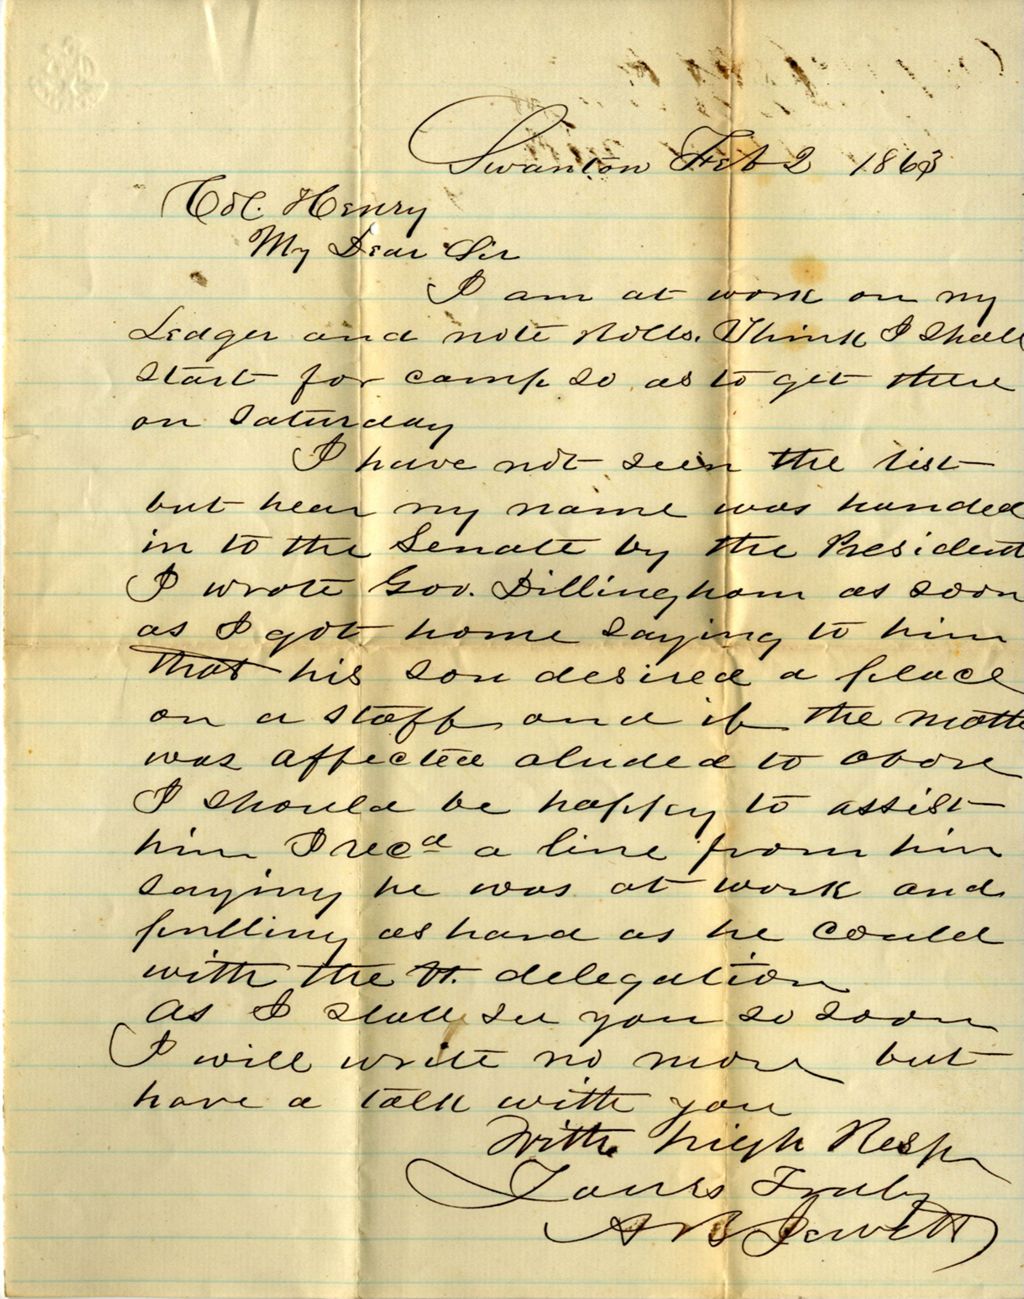 Swanton Feb 2 1863
Col. Henry
My Dear Sir
I am at work on my
Ledger and note Rolls. Think I shall
start for camp so as to get there
on Saturday
I have not seen the list
but hear my name was handed
in to the Senate by the President
I wrote Gov. Dillingham as soon
as I got home saying to him
that his son desired a place
on a staff and if the matte
was affected aluded to above
I should be happy to assist
him I recd a line from him
saying he was at work and
pulling as hard as he could
with the Vt. delegation
As I shall see you so soon
I will write no more but
have a talk with you
With high Resp
Yours Truly
A B Jewett